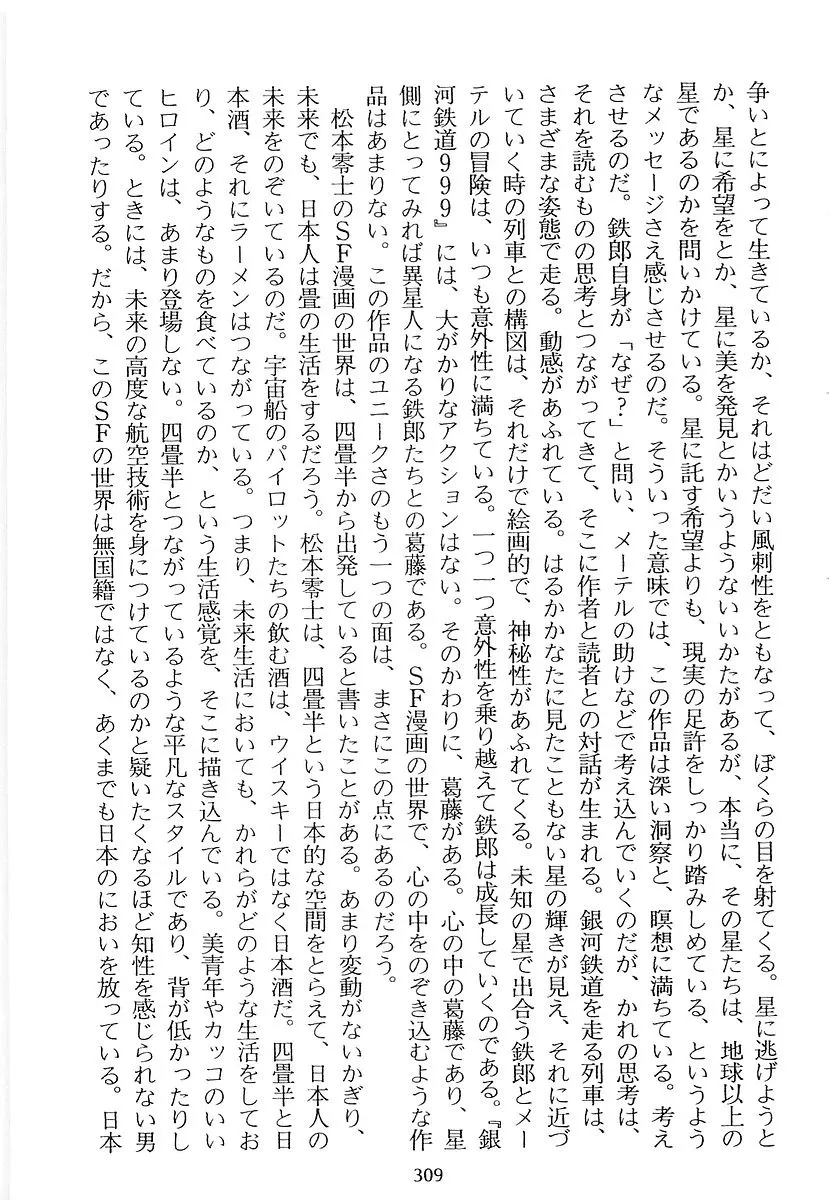 争いとによって生きているか、それはどだい風刺性をともなって、ぼくらの目を射てくる。星に逃げようと
か、星に希望をとか、星に美を発見とかいうようないいかたがあるが、本当に、その星たちは、地球以上の
星であるのかを問いかけている。星に託す希望よりも、現実の足許をしっかり踏みしめている、というよう
なメッセージさえ感じさせるのだ。そういった意味では、この作品は深い洞察と、瞑想に満ちている。考え
させるのだ。鉄郎自身が「なぜ？」と問い、メーテルの助けなどで考え込んでいくのだが、かれの思考は、
それを読むものの思考とつながってきて、そこに作者と読者との対話が生まれる。銀河鉄道を走る列車は、
さまざまな姿態で走る。動感があふれている。はるかかなたに見たこともない星の輝きが見え、それに近づ
いていく時の列車との構図は、それだけで絵画的で、神秘性があふれてくる。未知の星で出合う鉄郎とメー
テルの冒険は、いつも意外性に満ちている。一つ一つ意外性を乗り越えて鉄郎は成長していくのである。『銀
河鉄道９９９』には、大がかりなアクションはない。そのかわりに、葛藤がある。心の中の葛藤であり、星
側にとってみれば異星人になる鉄郎たちとの葛藤である。ＳＦ漫画の世界で、心の中をのぞき込むような作
品はあまりない。この作品のユニークさのもう一つの面は、まさにこの点にあるのだろう。
松本零士のＳＦ漫画の世界は、四畳半から出発していると書いたことがある。あまり変動がないかぎり、
未来でも、日本人は畳の生活をするだろう。松本零士は、四畳半という日本的な空間をとらえて、日本人の
未来をのぞいているのだ。宇宙船のパイロットたちの飲む酒は、ウイスキーではなく日本酒だ。四畳半と日
本酒、それにラーメンはつながっている。つまり、未来生活においても、かれらがどのような生活をしてお
り、どのようなものを食べているのか、という生活感覚を、そこに描き込んでいる。美青年やカッコのいい
ヒロインは、あまり登場しない。四畳半とつながっているような平凡なスタイルであり、背が低かったりし
ている。ときには、未来の高度な航空技術を身につけているのかと疑いたくなるほど知性を感じられない男
であったりする。だから、このＳＦの世界は無国籍ではなく、あくまでも日本のにおいを放っている。日本
309